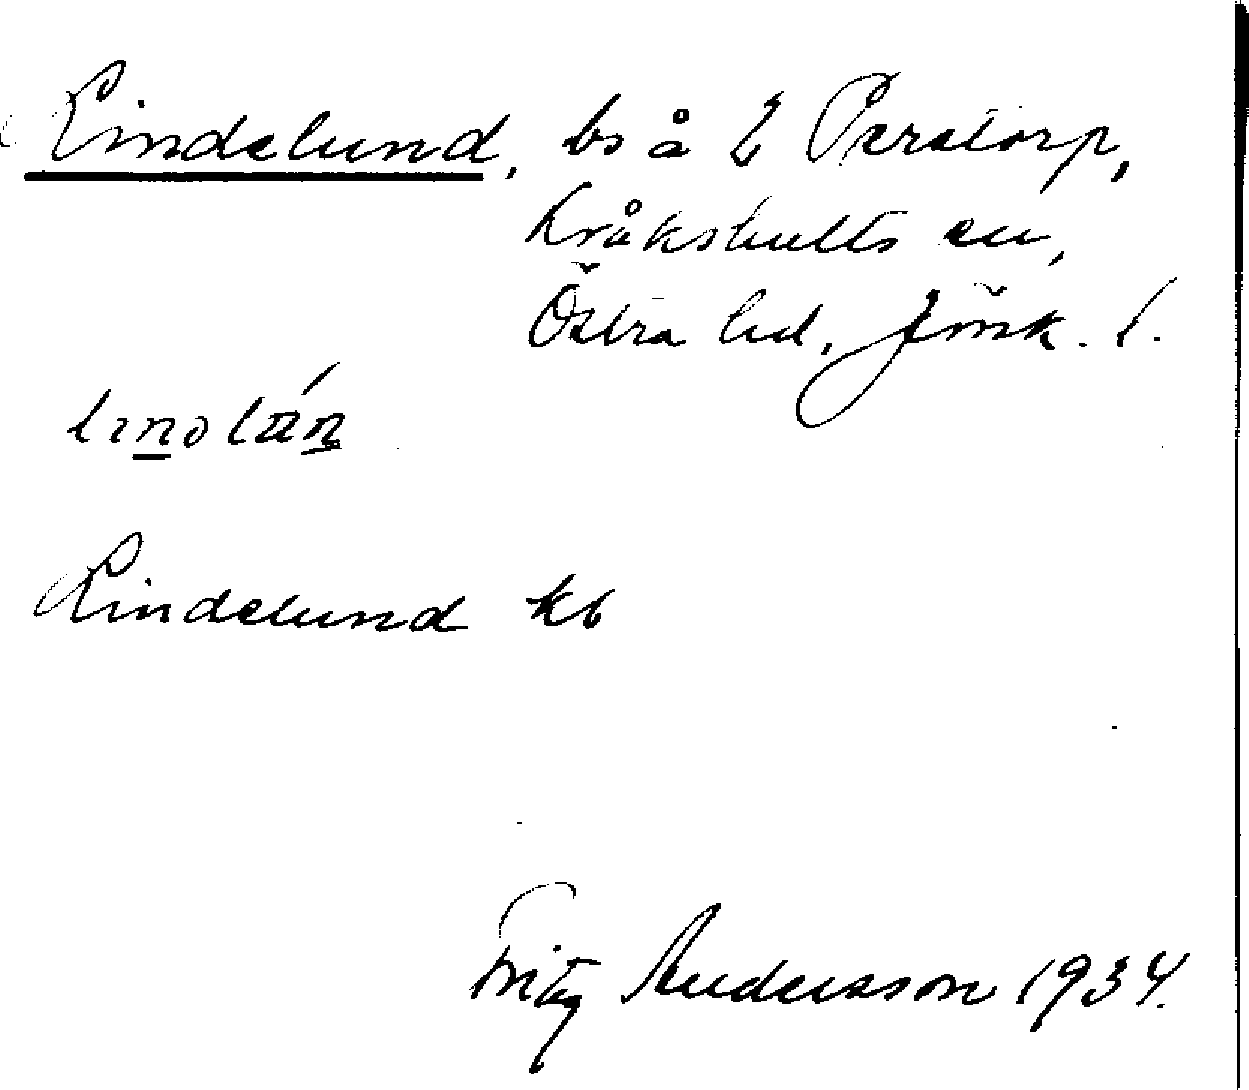 Lindelund, bs å L Perstorp,
Kråkshults sn,
Östra hd, Jönk. l.
Lindelund kb
Fritz Andersson 1934.